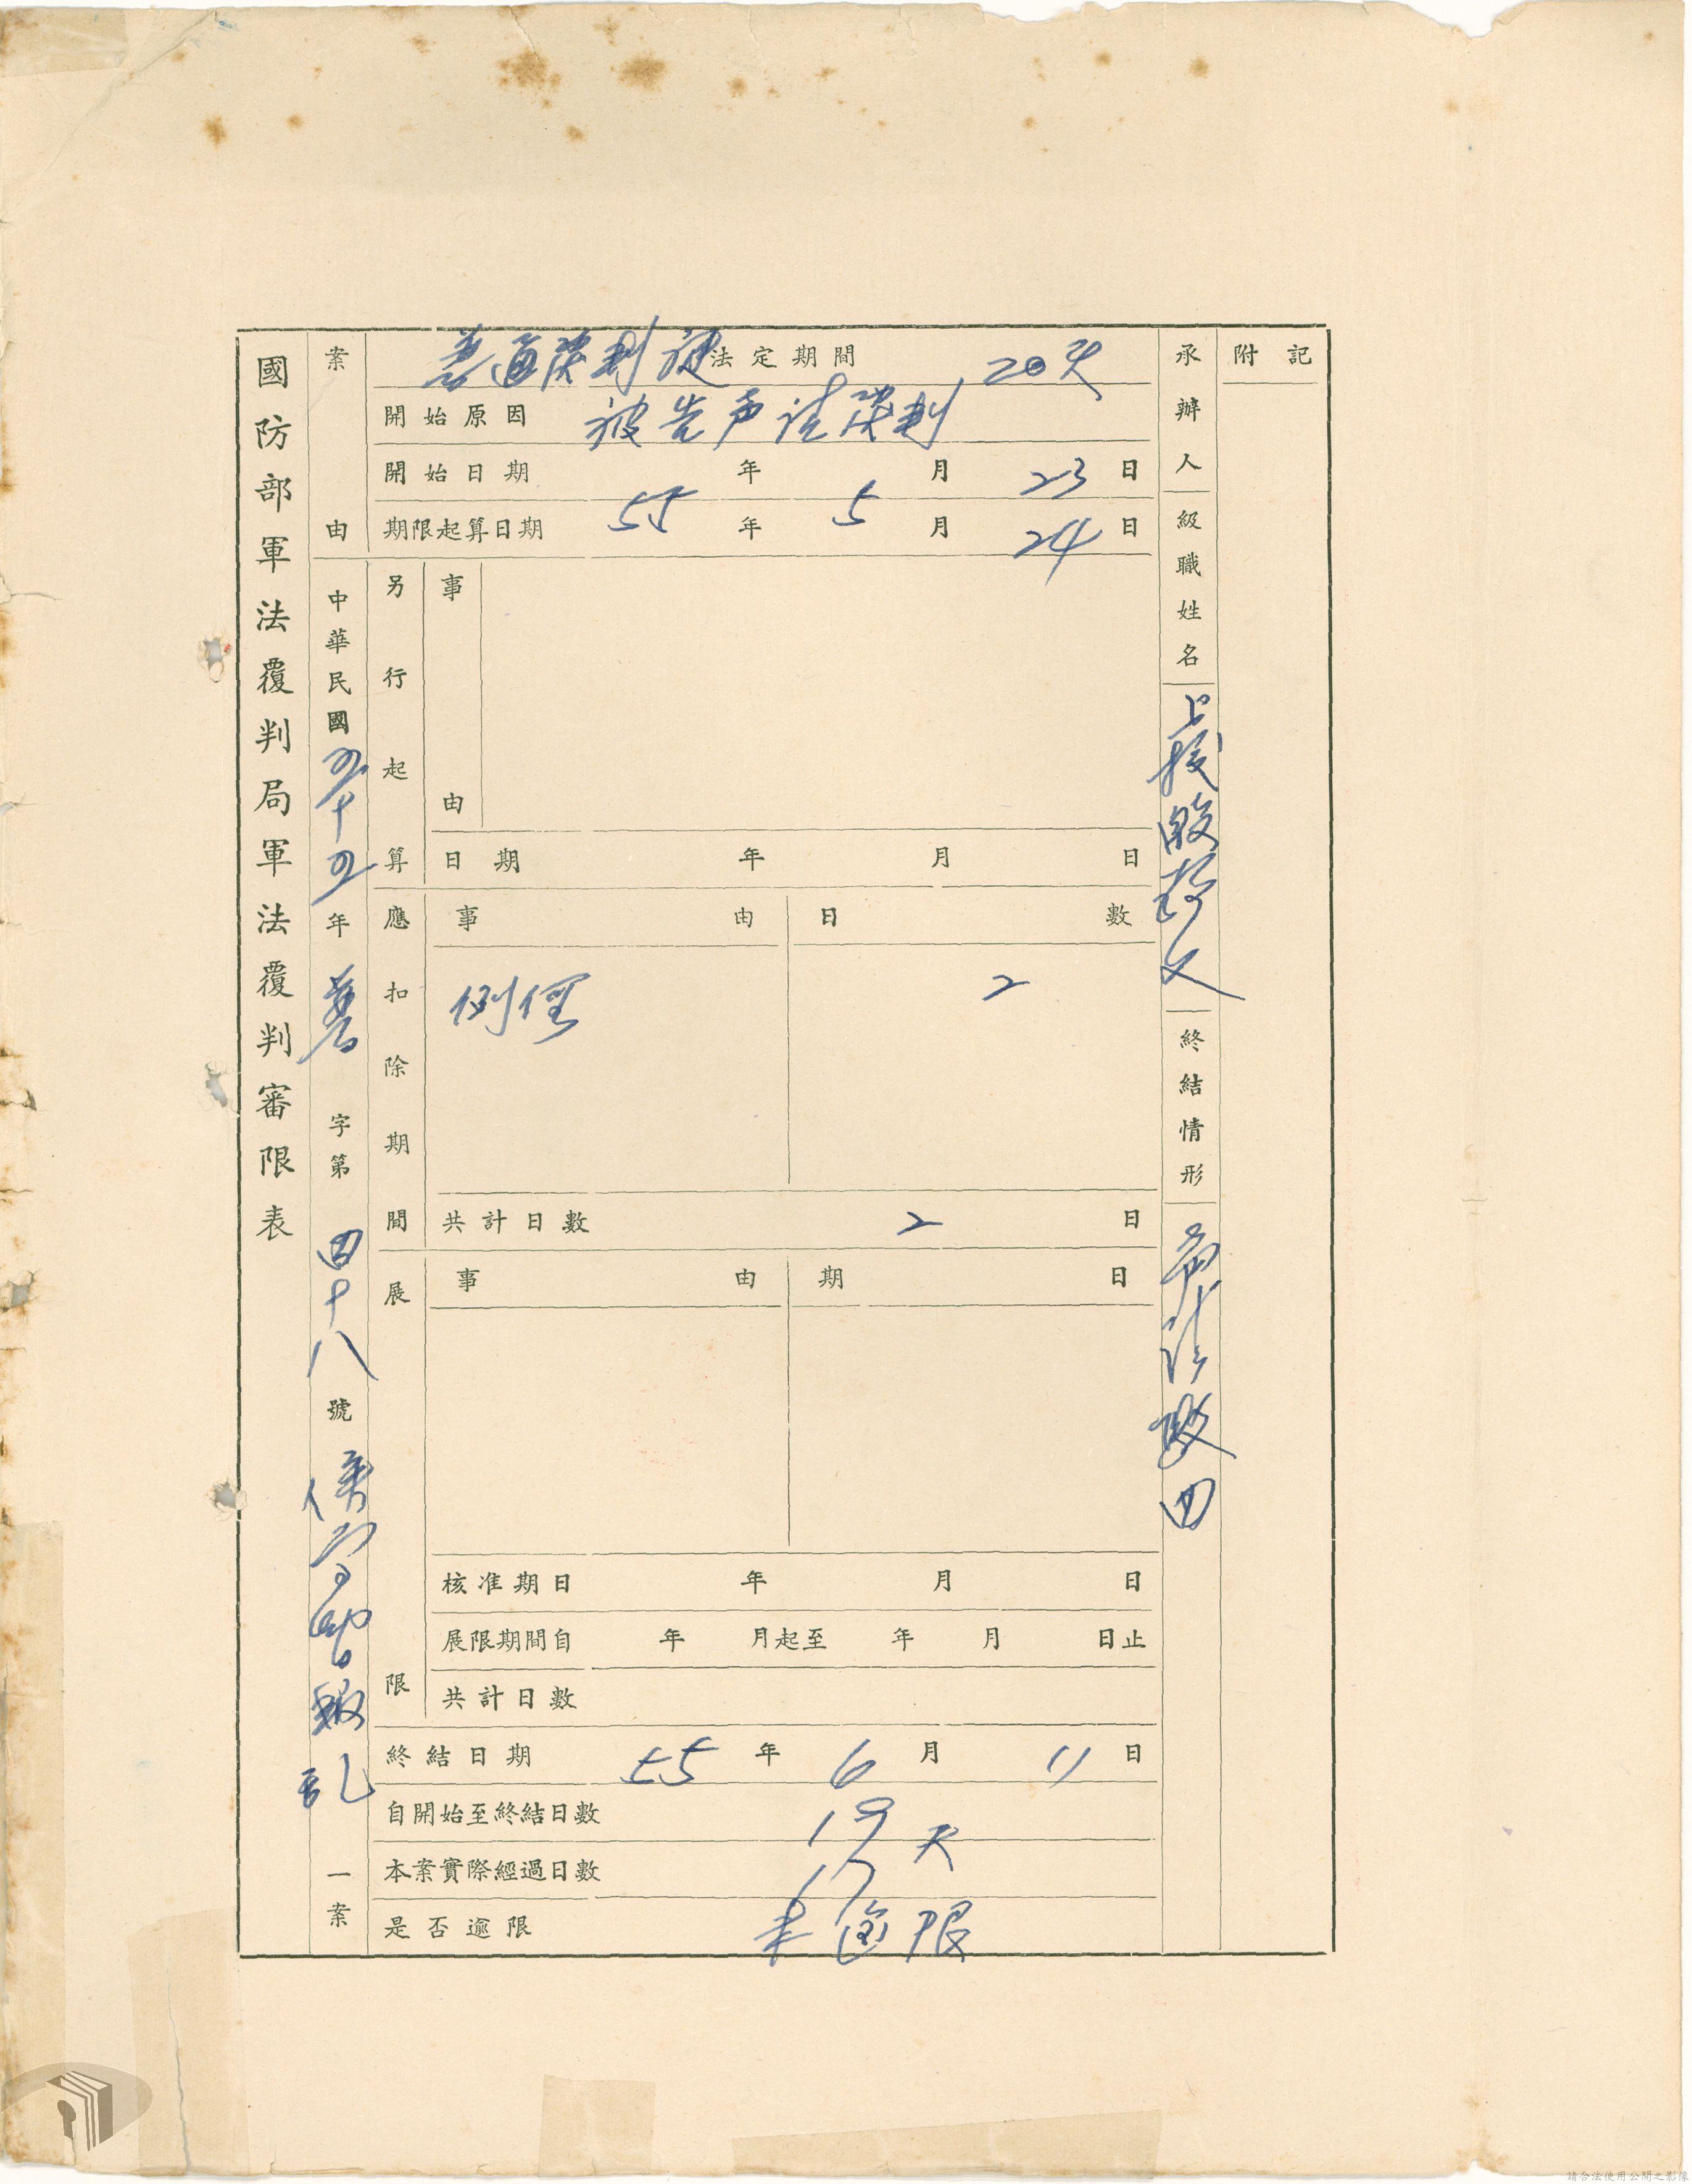 國防部軍法覆判局軍法覆判審限表
案由
中華民國五十五年普字第四十八號
叛乱一案
普通覆判案法定期間 20天
開始原因 被告声請覆判
開始日期 年 月 23日
期限起算日期 55年 5月 24日
另行起算
事由
日期 年 月 日
應扣除期間
事由 日數
例假 2
共計日數 2 日
展限
事由 期日
核准期日 年 月 日
展限期間自 年 月起至 年 月 日止
共計日數
終結日期 55年 6月 11日
自開始至終結日數 19天
本案實際經過日數 17
是否逾限 未逾限
承辦人級職姓名
上校
終結情形
声請駁回
附記
請合法使用公開之影像